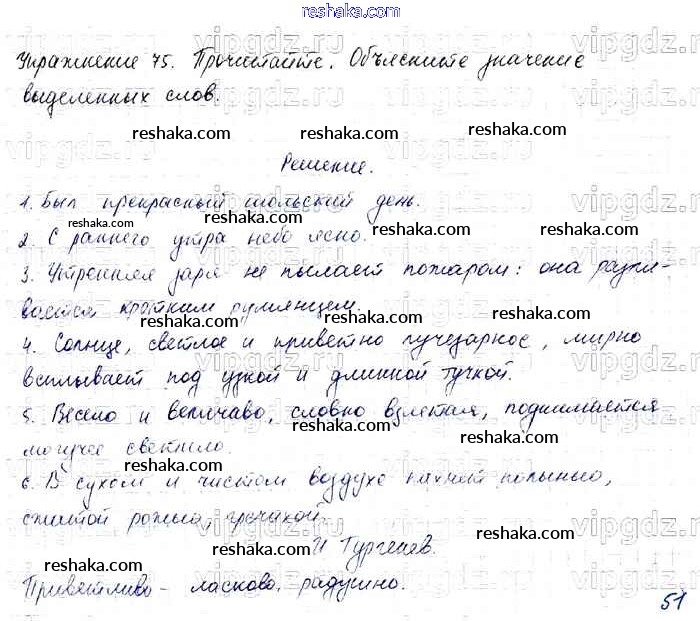 reshaka.com
Упражнение 75. Прочитайте. Объясните значение
выделенных слов.
reshaka.com reshaka.com reshaka.com
Решение.
1. Был прекрасный июльский день.
reshaka.com reshaka.com reshaka.com
2. С раннего утра небо ясно.
3. Утренняя заря не пылает пожаром: она разли-
вается кротким румянцем.
reshaka.com reshaka.com reshaka.com
4. Солнце, светлое и приветно лучезарное, мирно
всплывает под узкой и длинной тучкой.
reshaka.com reshaka.com reshaka.com
5. Весело и величаво, словно взлетая, поднимается
могучее светило.
reshaka.com reshaka.com reshaka.com
6. В сухом и чистом воздухе пахнет полынью,
сжатой рожью, гречихой.
И Тургенев.
reshaka.com reshaka.com reshaka.com
Приветливо - ласково, радушно.
51
vipgdz.com